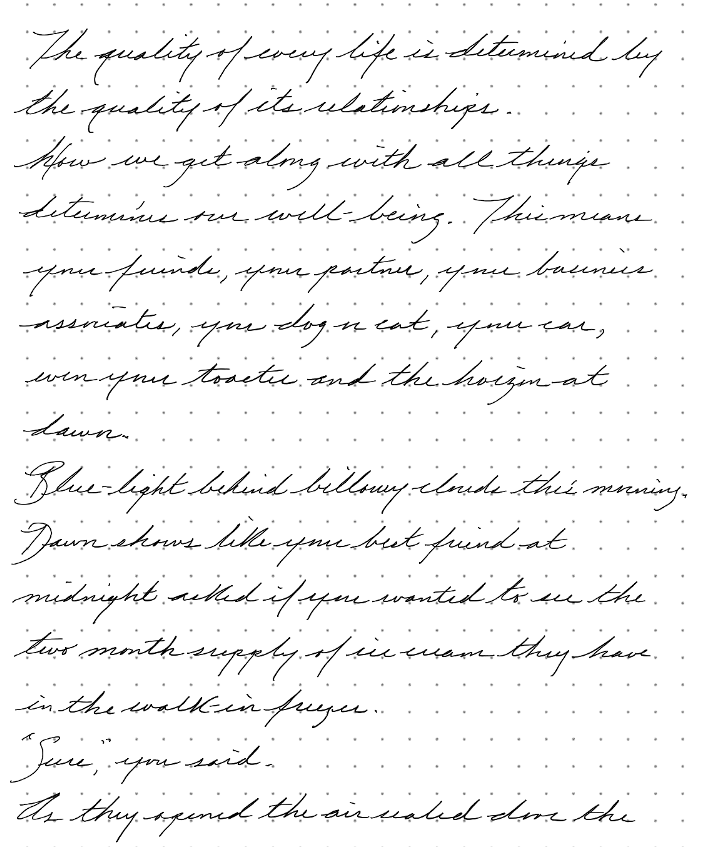 The quality of every life is determined by
the quality of its relationships.
How we get along with all things
determines our well-being. This means
your friends, your partner, your business
associates, your dog n cat, your car,
even your toaster and the horizon at
dawn.
Blue-light behind billowy clouds this morning.
Dawn shows like your best friend at
midnight asked if you wanted to see the
two month supply of ice cream they have
in the walk-in freezer.
"Sure", you said.
As they opened the air sealed door the